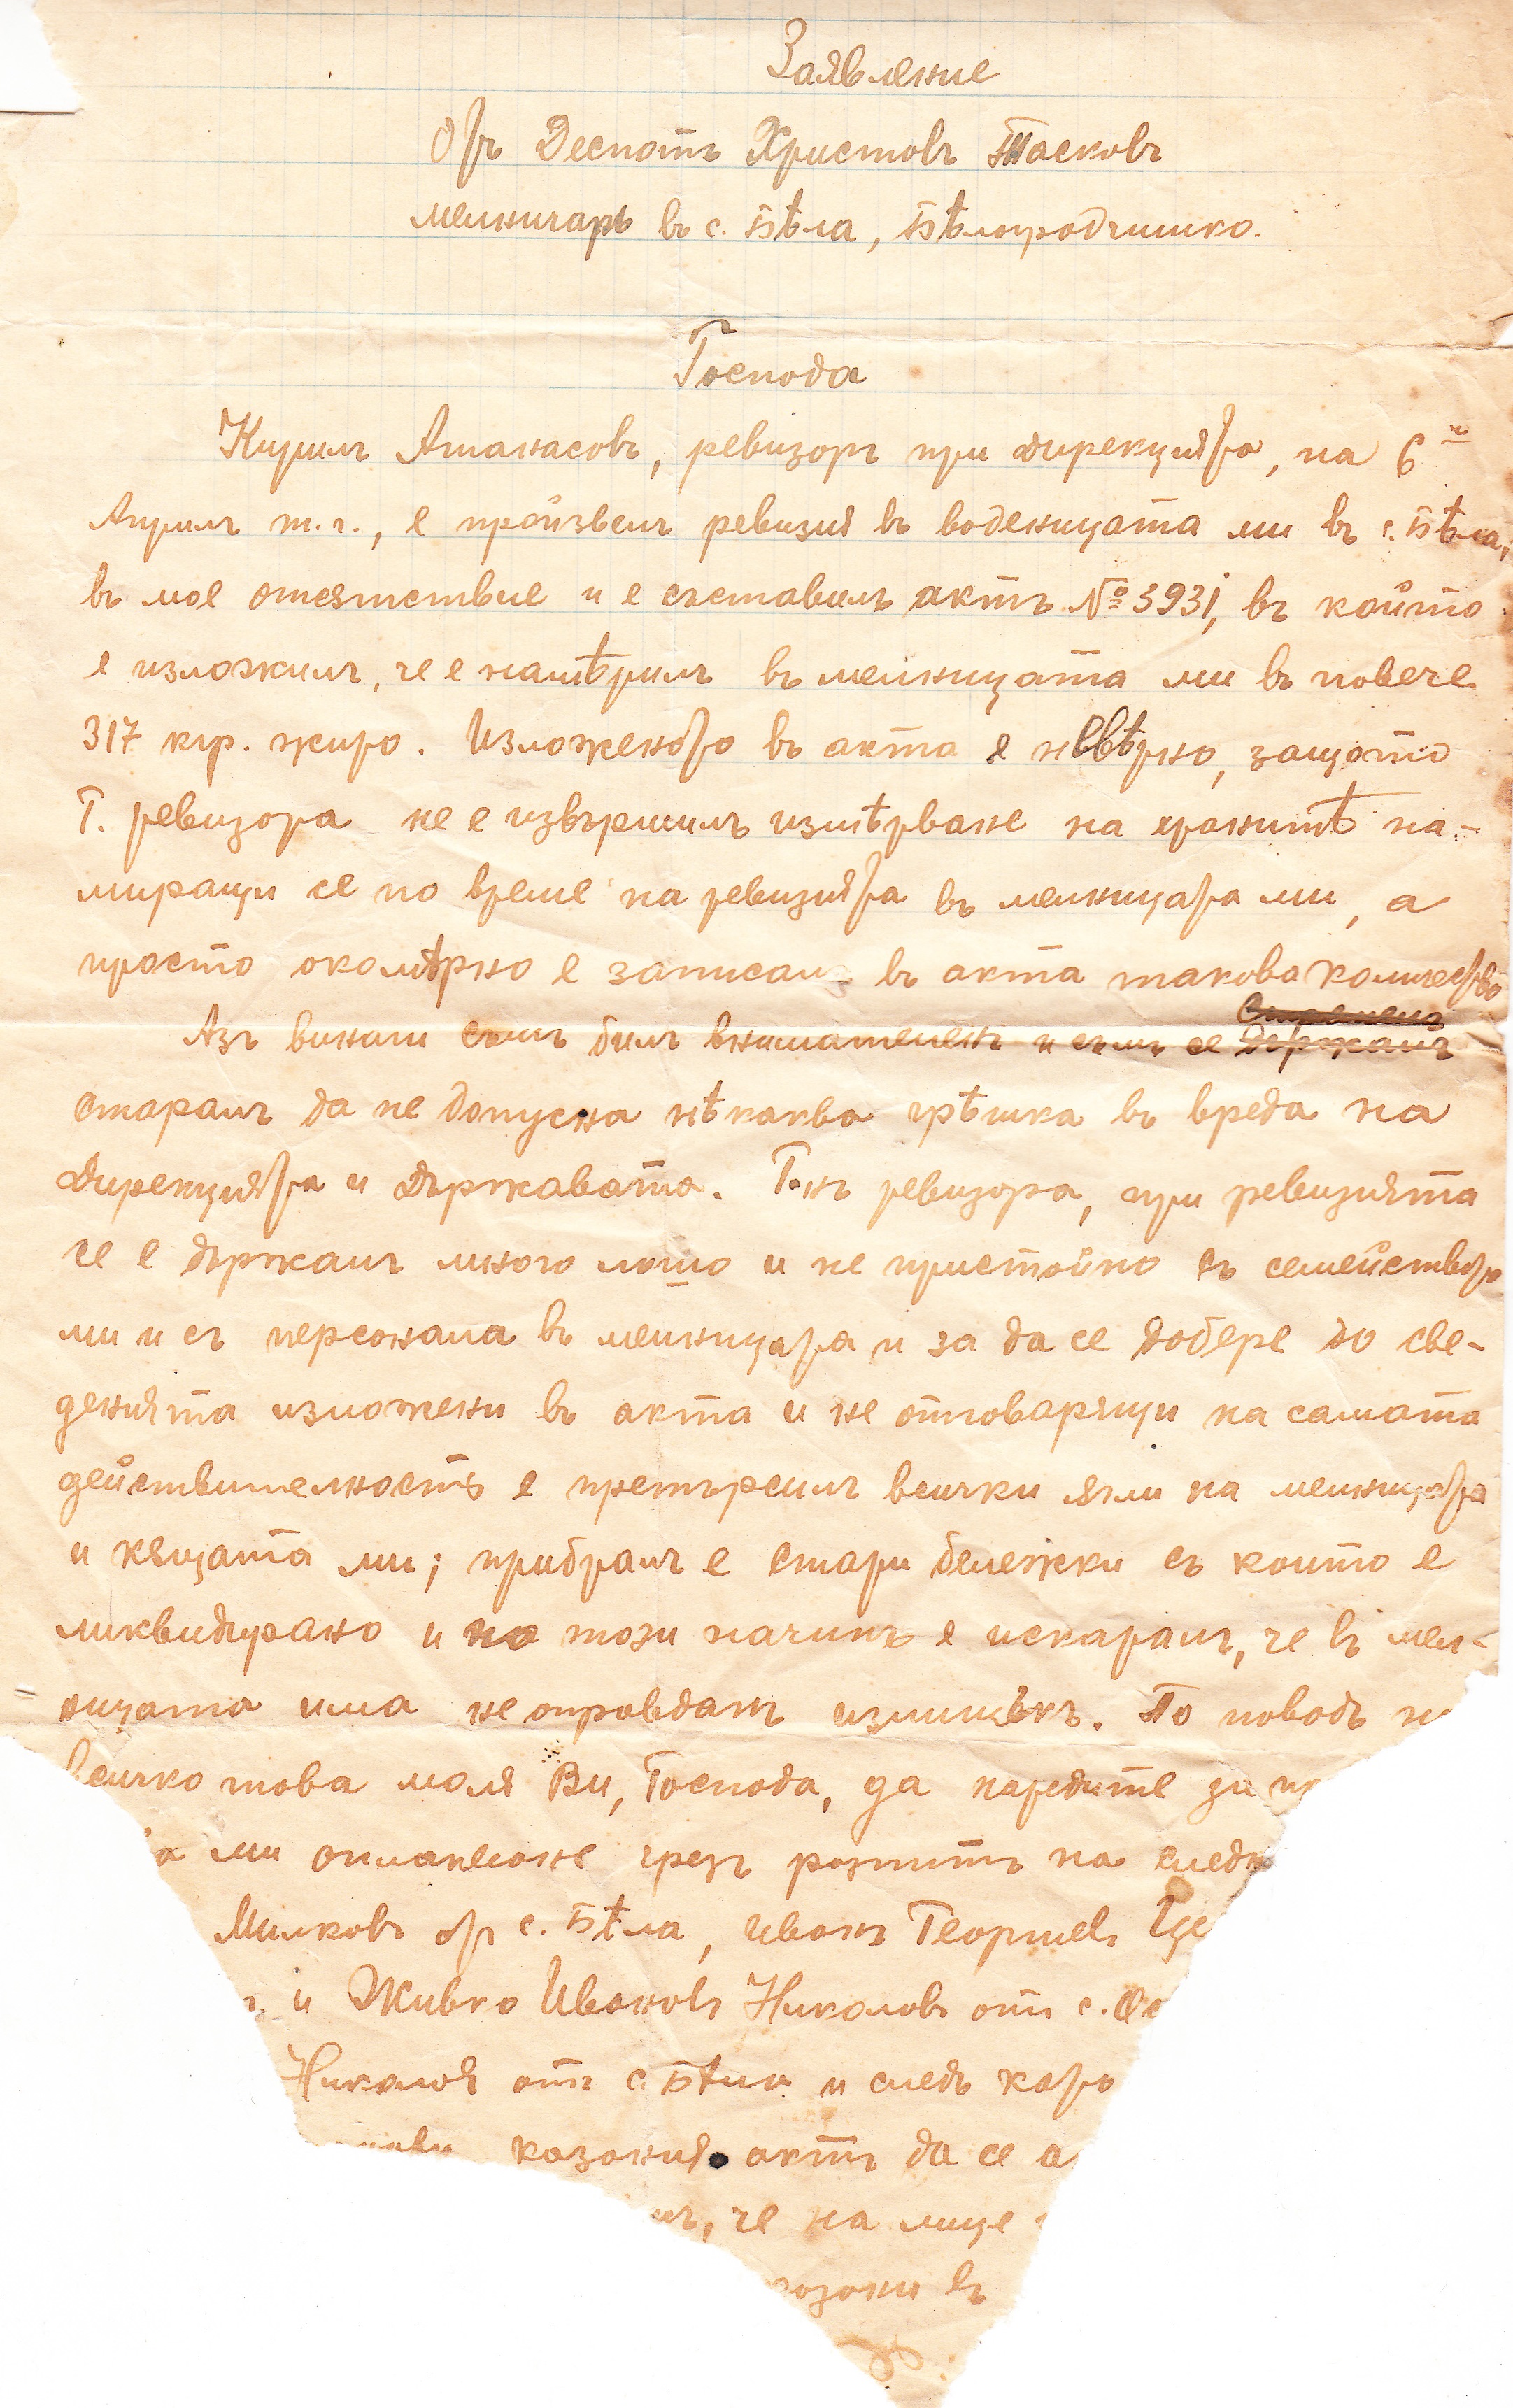 Заявление
Отъ Деспотъ Христовъ Тасковъ
мелничарь въ с. Бѣла, Бѣлоградчишко.
Господа
Кирилъ Атанасовъ, ревизоръ при Дирекцията, на 6 й
Априлъ т.г., е произвелъ ревизия въ воденицата ми въ с. Бѣла,
въ мое отсѫтствие и е съставилъ актъ № 3931, въ който
е изложилъ, че е намѣрилъ въ мелницата ми въ повече
317 кгр. жиро. Изложеното въ акта е невѣрно, защото
Г. ревизора не е извършилъ измѣрване на хранитѣ на-
миращи се по време на ревизията въ мелницата ми, а
просто окомѣрно е записалъ въ акта такова количество
Азъ винаги съмъ билъ внимателенъ и съмъ се държалъ
старалъ да не допусна нѣкаква грѣшка въ вреда на
Дирекцията и Държавата. Г-нъ ревизора, при ревизията
се е държалъ много лошо и не пристойно съ семейството
ми и съ персонала въ мелницата и за да се добере до све-
денията изложени въ акта и не отговарящи на самата
действителность е претърсилъ всички ѫгли на мелницата
и кѫщата ми; прибралъ е стари бележки съ които е
ликвидирано и по този начинъ е искаралъ, че въ мел-
ницата има не оправданъ излишѣкъ. По поводъ н
всичко това моля Ви, Господа, да наредите за пр
а ми оплакване чрезъ разпитъ на следн
Милковъ отъ с. Бѣла, Иванъ Георгиевъ Це
ъ и Живко Ивановъ Николовъ отъ с.
Николов отъ с. Бѣла и следъ като
казания актъ да се а
лъ, че на лице
въ